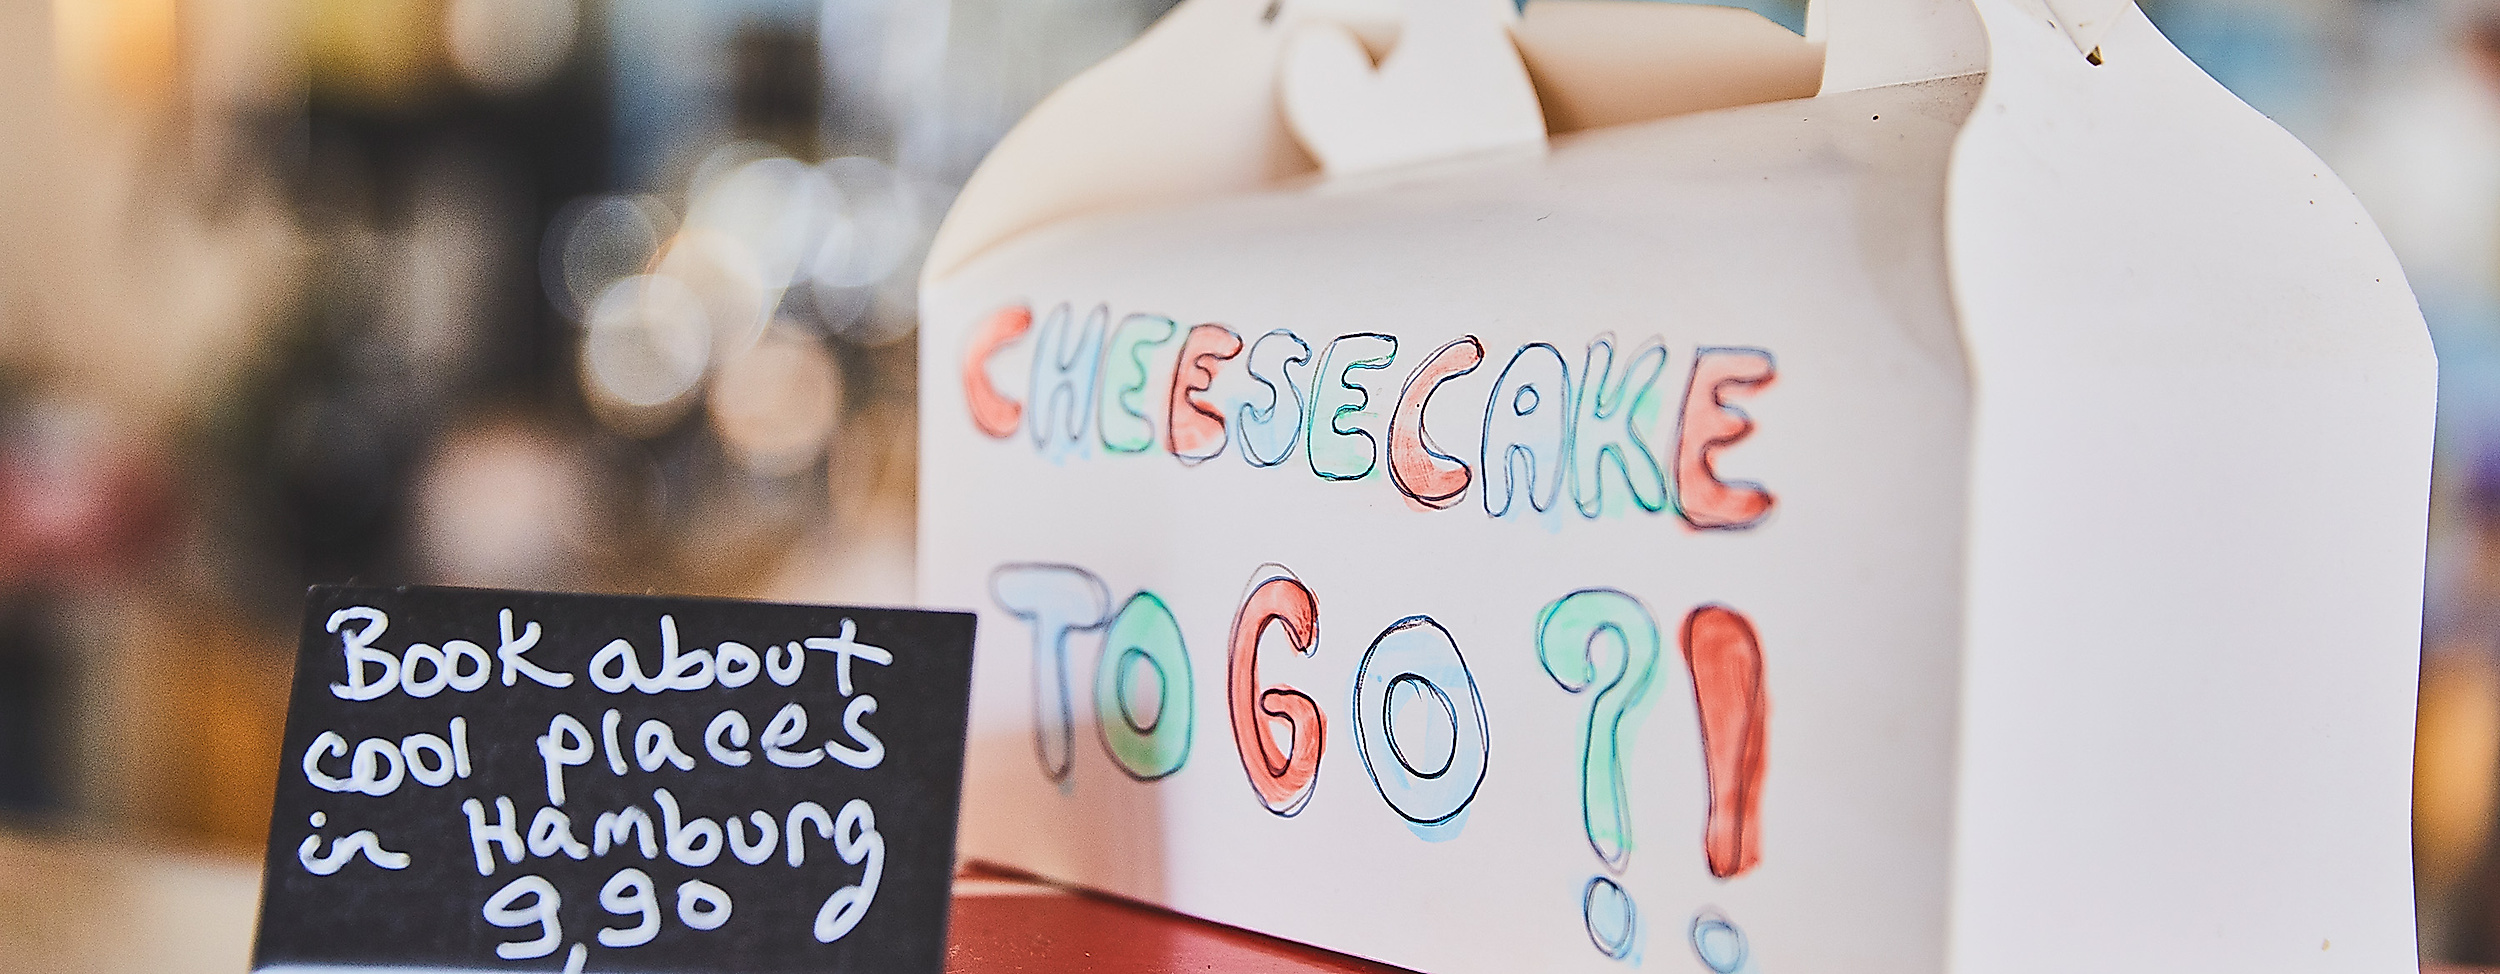 CHEESECAKE
TO GO?!
Book about
cool places
in Hamburg
9,90